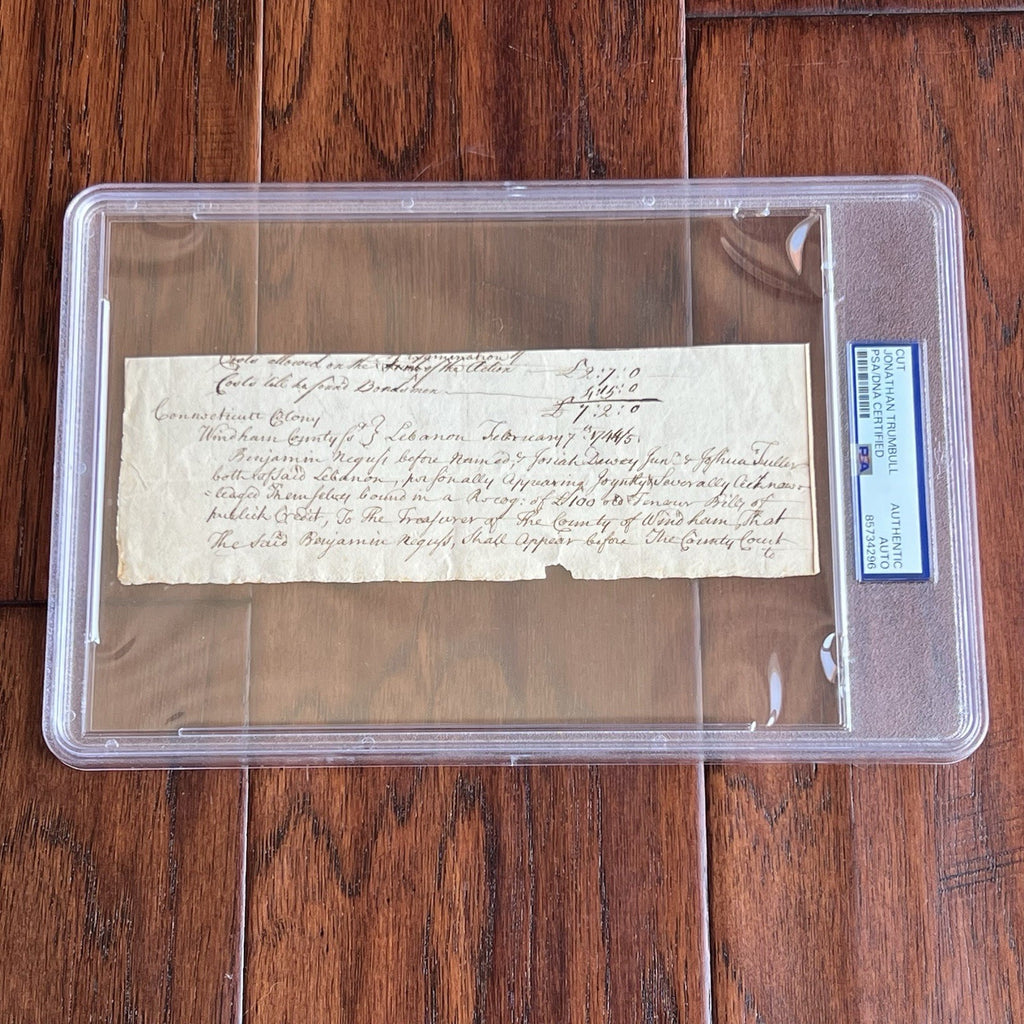 Costs allowed on the Examination of
of the Action £2:7:0
Costs till he find Bondsmen 4:15:0
£ 7:2:0
Connecticutt Colony
Windham County Ss } Lebanon February 7th 1744/5
Benjamin Neguss before named, & Josiah Dewey Junr & Joshua Fuller
both of said Lebanon, personally Appearing Joyntly & Severally Acknow-
=ledged Themselves bound in a Recog: of £100 old Tenour Bills of
publick Credit, To The Treasurer of The County of Windham That
The Said Benjamin Neguss, Shall Appear before The County Court
to
CUT
JONATHAN TRUMBULL
PSA/DNA CERTIFIED
PSA
AUTHENTIC
AUTO
85734296